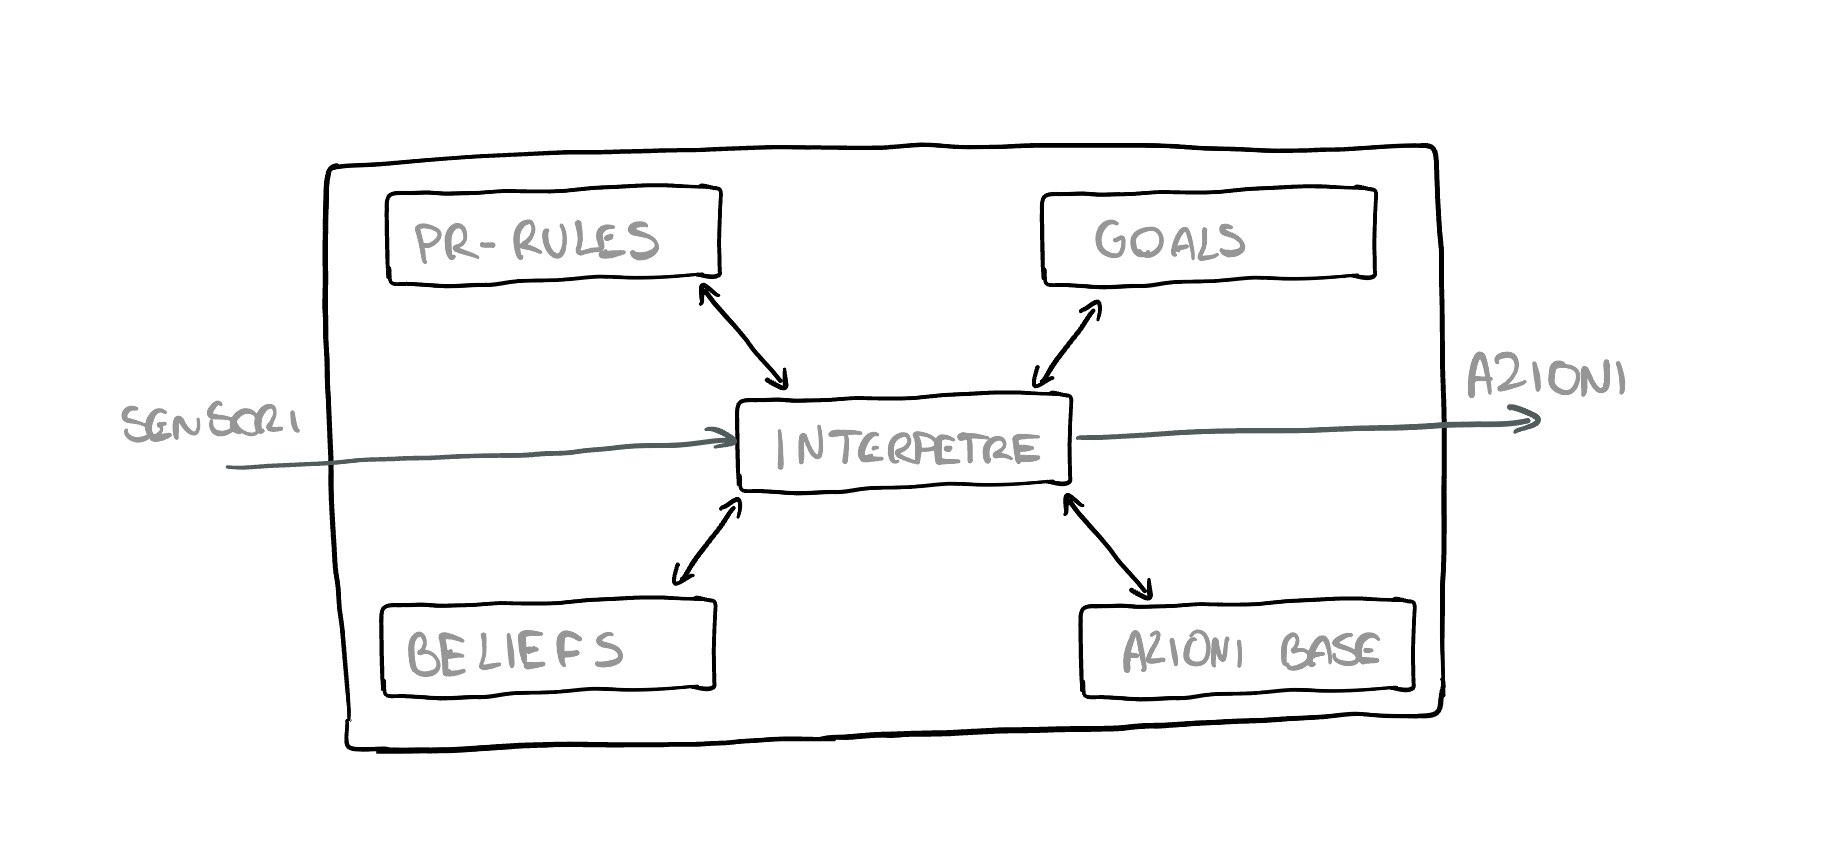 PR-RULES
GOALS
SENSORI
INTERPETRE
AZIONI
BELIEFS
AZIONI BASE